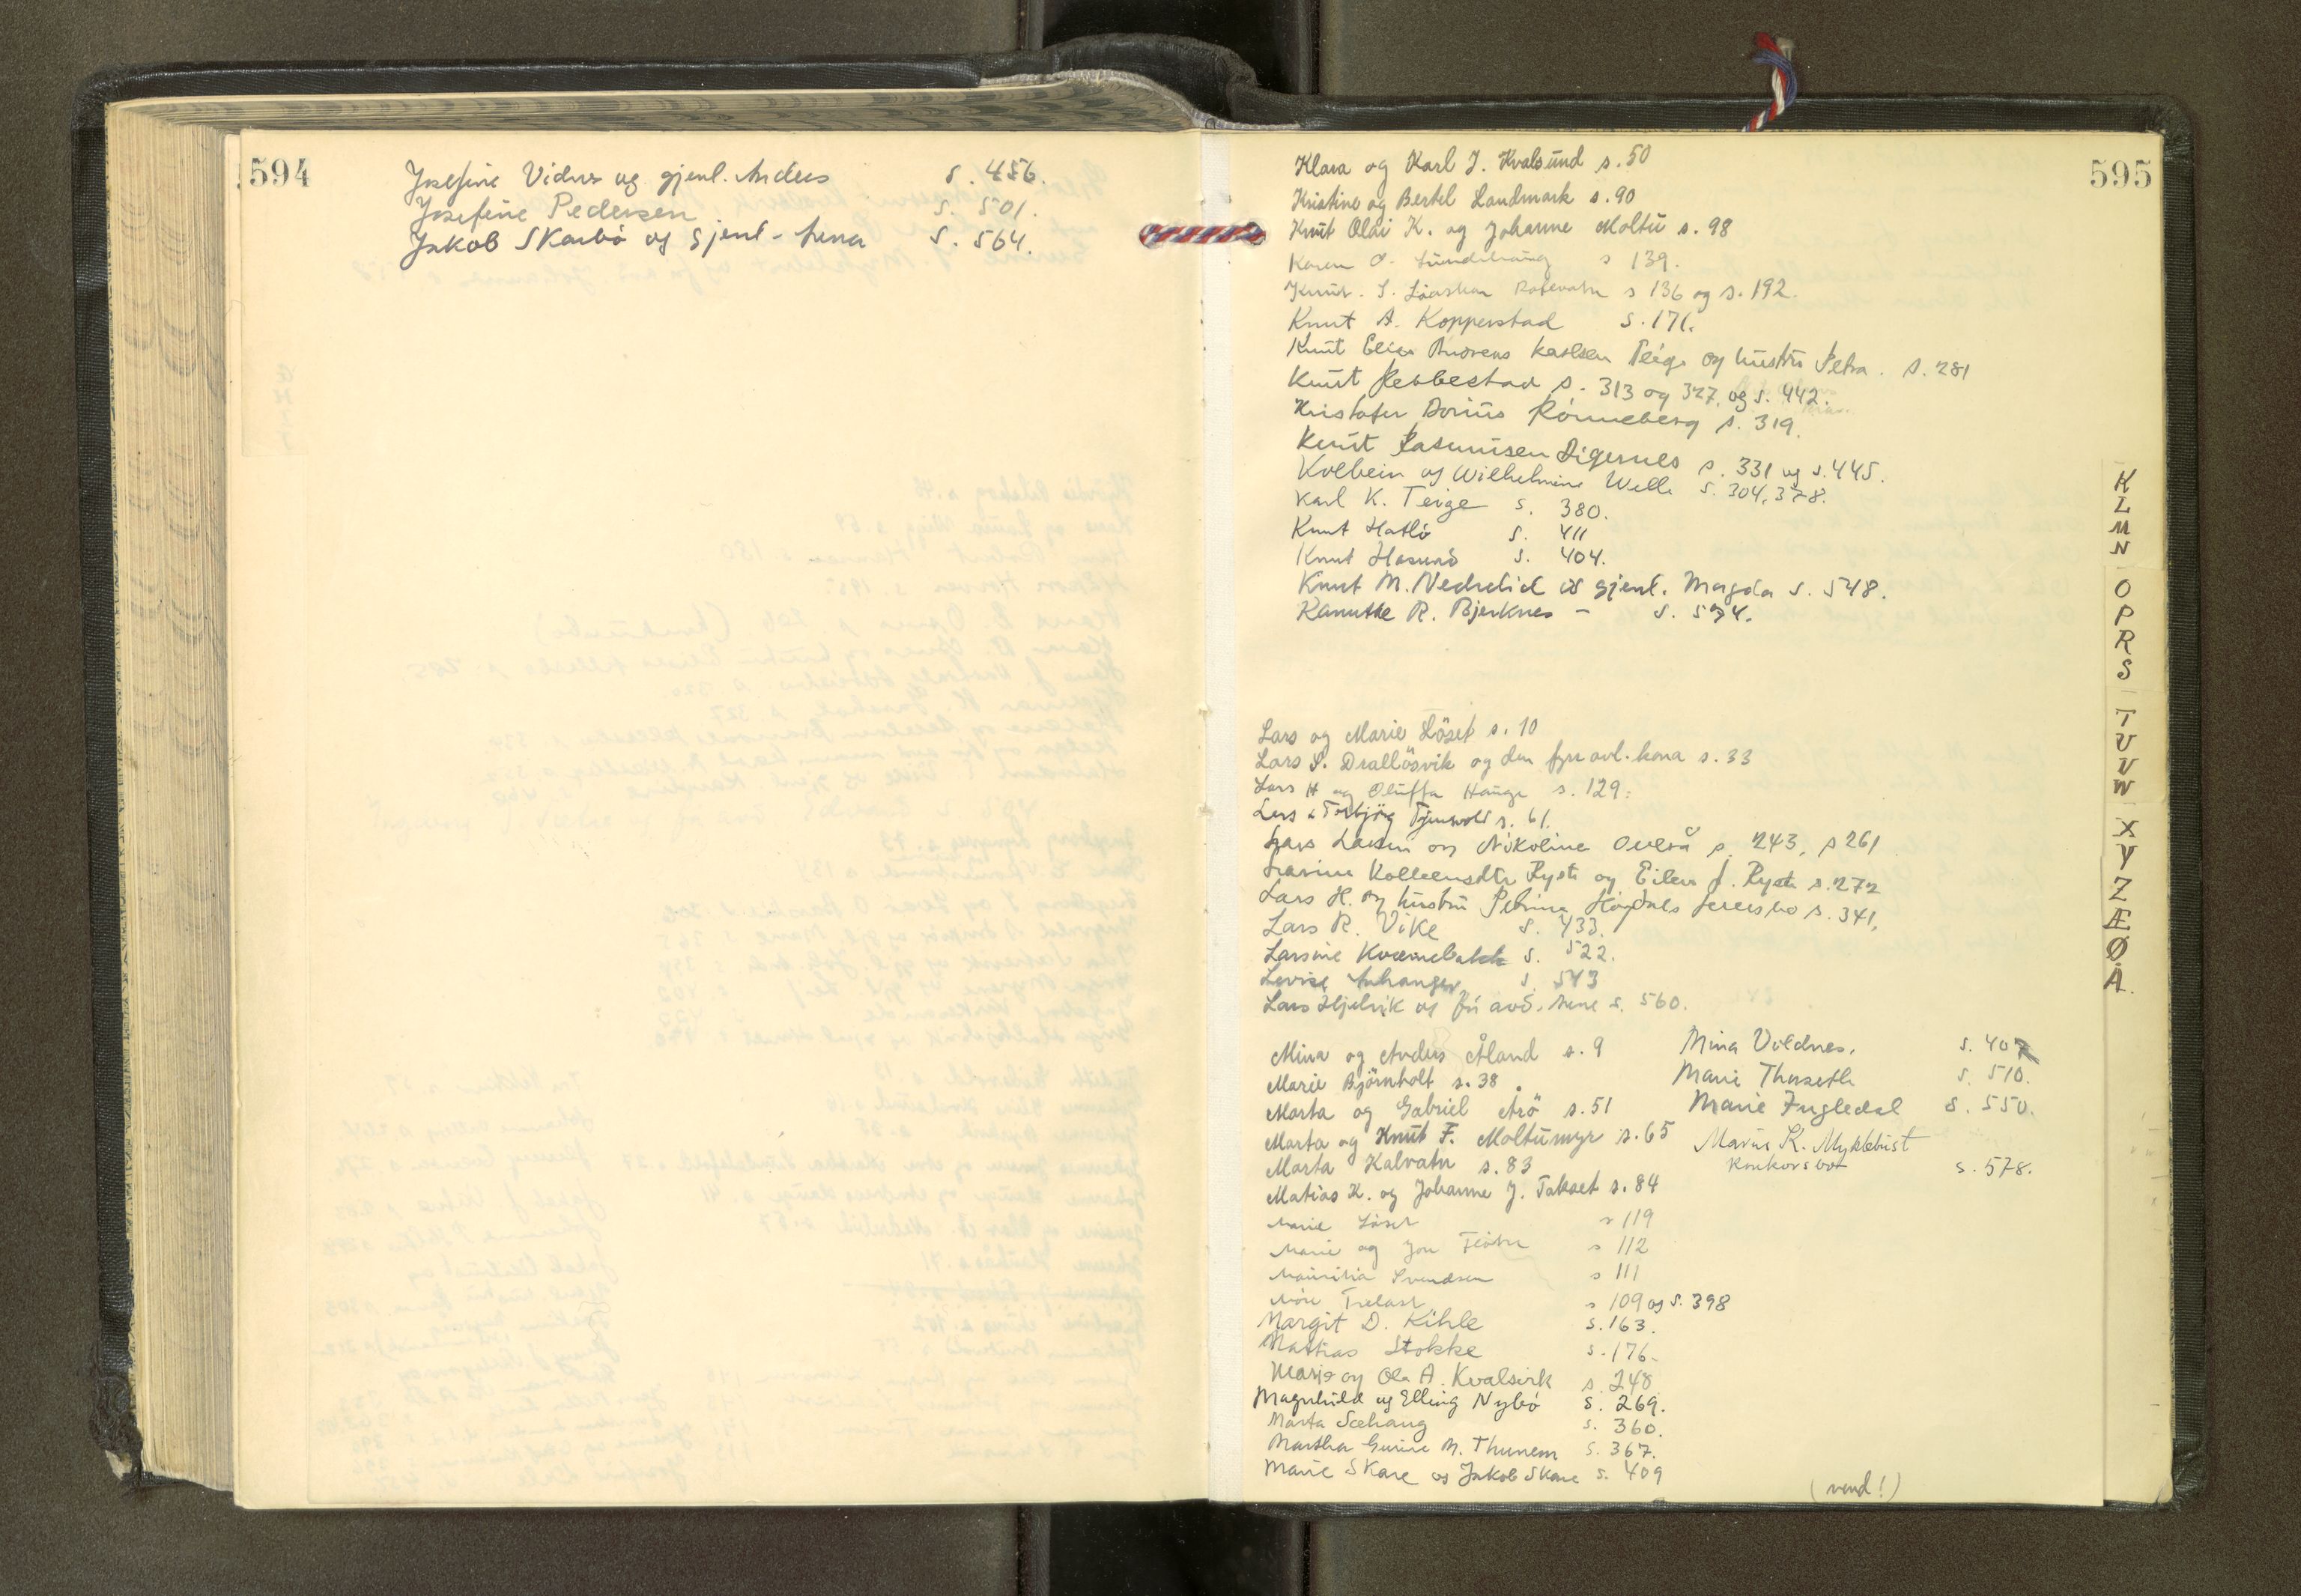 594
Josefine Vidnes og gjenl. Anders s. 456.
Josefine Pedersen s. 501.
Jakob Skarbö og gjenl. Anna s. 564.
595
Klara og Karl J. Kvalsund s. 50
Kristine og Bertel Landmark s. 90
Knut Olai K. og Johanne Moltu s. 98
Karen O. s 139.
Knut. S. Rotevatn s 136 og s. 192.
Knut A. Kopperstad s. 171.
Knut Elias Andreas Karlsen Teige og hustru Petra. s. 281
Knut Rebbestad s. 313 og 327, og s. 442.
Kristofer Dorius Rönneberg s. 319.
Knut Rasmusen Digernes s. 331 og s. 445.
Kolbein og Wilhelmine Welle s. 304, 378.
Karl K. Teige s. 380.
Knut Hatlö s. 411
Knut Hasund s. 404.
Knut M. Nedrelid og gjenl. Magda s. 548.
Kanutte R. Bjerknes - s. 574.
Lars og Marie Löset s. 10
Lars S. Drallösvik og den fyrr avl. kona s. 33
Lars H og Oluffa Hauge s. 129.
Lars & Torbjörg s. 61.
Lars Larsen og Nikoline Overå s. 243, s 261
Kolbeensdtr Ryste og Eilev J. Ryste s. 272
Lars H. og hustru Petrine s. 341,
Lars R. Vike s. 433.
Larsine Kvernebakk s. 522.
Lovise s. 543
Lars Hjelvik og fru avd. Anne s. 560.
Mina og Anders Åland s. 9
Marie Björnholt s. 38.
Marta og Gabriel Arö s. 51
Marta og Knut F. Moltumyr s. 65
Marta Kalvatn s. 83
Matias K. og Johanne J. Takset s. 84
Marie Löset s 119
Marie og Jon s 112
Svendsen s 111
Möre Trelast s 109 og s. 398
Margit D. Kihle s. 163.
Mathias Stokke s. 176.
Marie og Ola A. Kvalsvik s. 248
Magnhild og Elling Nybö s. 269.
Marta Sæhaug s. 360.
Martha Gurine M. Thunem s. 367.
Marie Skare og Jakob Skare s. 409
Mina Voldnes. s. 407
Marie Thuseth s. 510.
Marie Fugledal s. 550.
Marius K. Myklebust
konkursbo s. 578.
(vend!)
K
L
M
N
O
P
R
S
T
U
V
W
X
Y
Z
Æ
Ø
Å